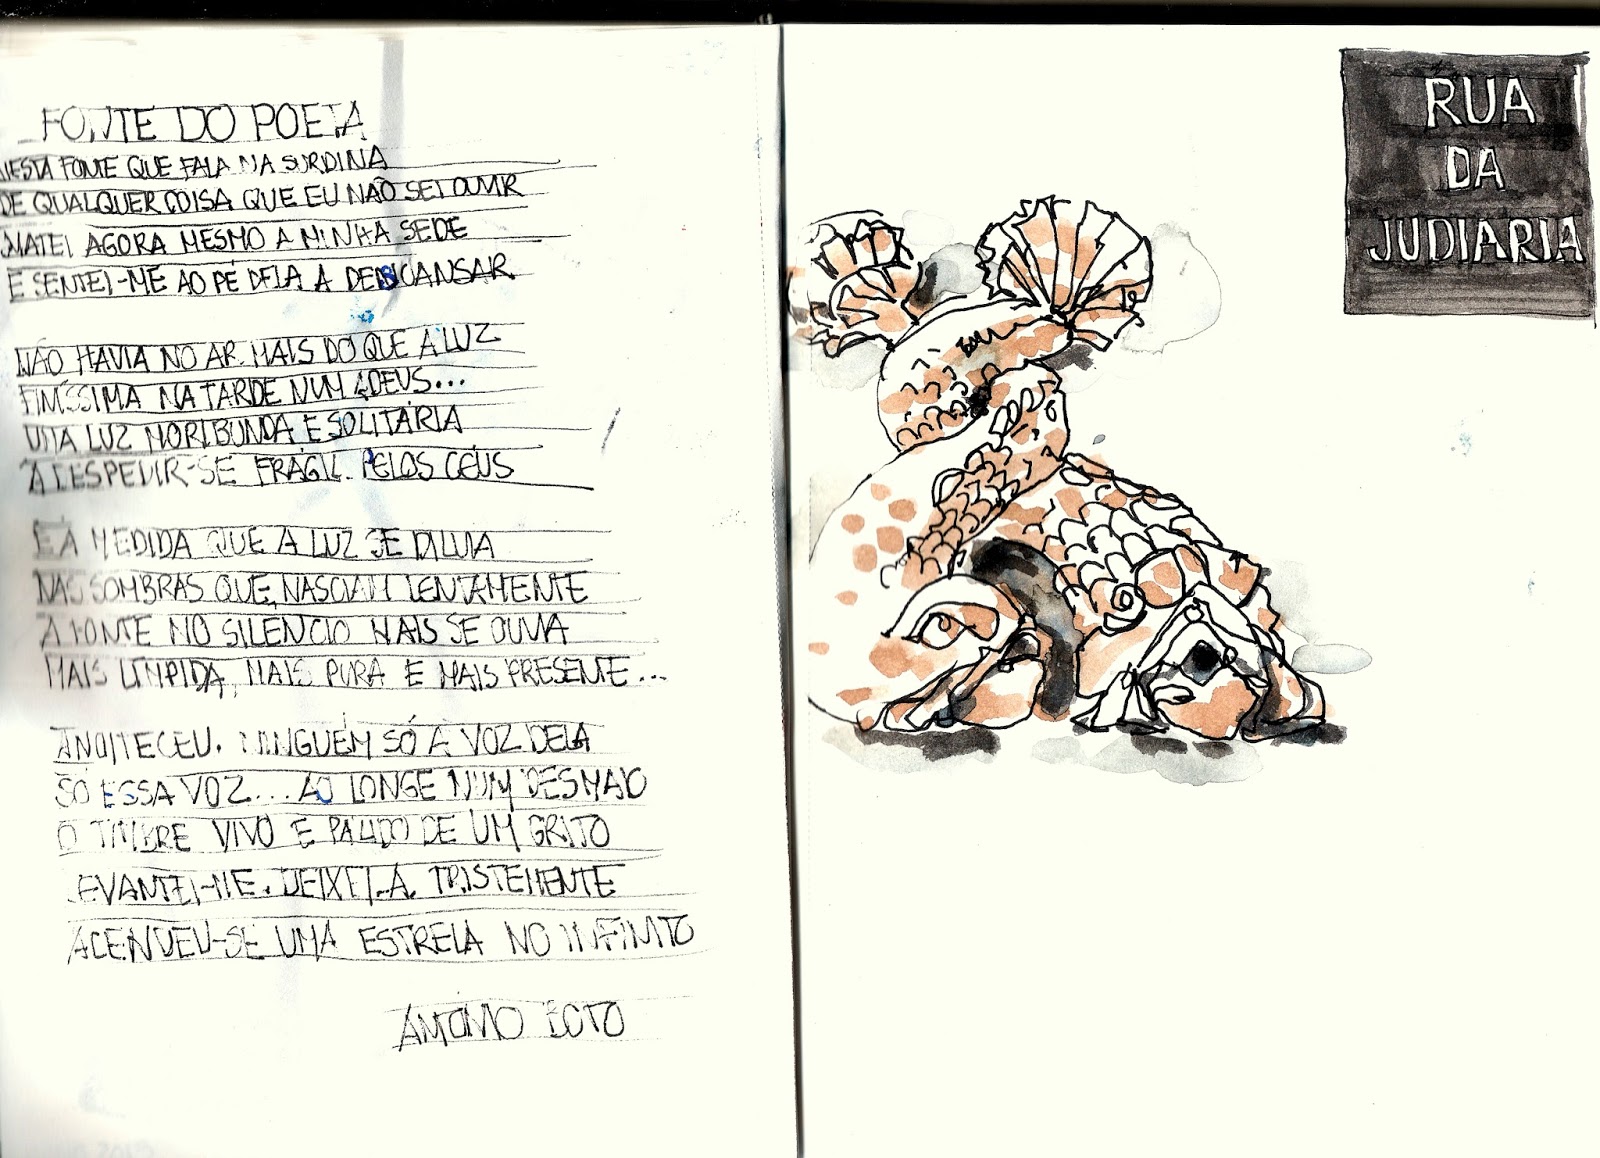 FONTE DO POETA
NESTA FONTE QUE FALA NA SURDINA
DE QUALQUER COISA QUE EU NÃO SEI OUVIR
MATEI AGORA MESMO A MINHA SEDE
E SENTEI-ME AO PÉ DELA A DESCANSAR
NÃO HAVIA NO AR MAIS DO QUE A LUZ
FINÍSSIMA NA TARDE NUM ADEUS...
UMA LUZ MORIBUNDA E SOLITÁRIA
A DESPEDIR-SE FRÁGIL PELOS CÉUS
E À MEDIDA QUE A LUZ SE DILUIA
NAS SOMBRAS QUE NASCIAM LENTAMENTE
A FONTE NO SILÊNCIO MAIS SE OUVIA
MAIS LÍMPIDA, MAIS PURA E MAIS PRESENTE...
ANOITECEU. NINGUÉM SÓ A VOZ DELA
SÓ ESSA VOZ... AO LONGE NUM DESMAIO
O TIMBRE VIVO E PALIDO DE UM GRITO
LEVANTEI-ME. DEIXEI-A. TRISTEMENTE
ACENDEU-SE UMA ESTRELA NO INFINITO
ANTÓNIO BOTO
RUA
DA
JUDIARIA